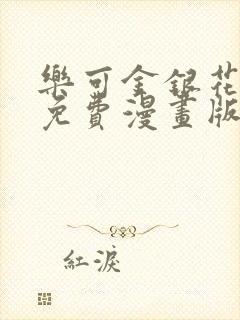 樂可金銀花
免費漫畫版
紅淚